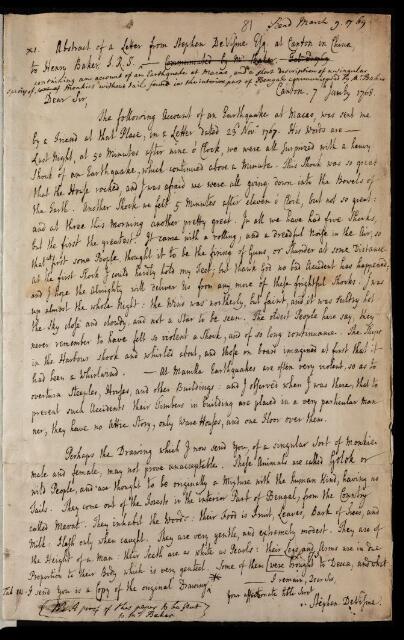 81 Read March 9. 1769
XII. Abstract of a Letter from Stephen DeVisme Esq. at Canton in China,
to Henry Baker, F.R.S. Communicated by Mr Baker.
containing an account of an Earthquake at Macao, and a short description of a singular
species of Monkies without tails, found in the interior part of Bengal; communicated by Mr Baker
Dear Sir, Canton. 7 Janry 1768.
The following Account of an Earthquake at Macao, was sent me
by a Friend at that Place, in a Letter dated 23 Novr 1767. His Words are —
Last Night, at 50 Minutes after nine o'Clock, we were all surprised with a heavy
Shock of an Earthquake, which continued above a Minute. This Shock was so great
that the House rocked and I was afraid we were all going down into the Bowels of
the Earth. Another Shock we felt 5 Minutes after eleven o'Clock, but not so great:
and at three this morning another pretty great. In all we have had five Shocks,
but the first the greatest. It came with a rolling, and a dreadful Noise in the Air; so
that some People thought it to be the firing of Guns, or Thunder at some Distance.
At the first Shock I could hardly hold my Feet; but thank God no bad Accident has happened,
and I hope the Almighty will deliver us from any more of these frightful Shocks. I was
up almost the whole Night: the Wind was northerly, but faint, and it was sultry hot
the Sky close and cloudy, and not a Star to be seen. The oldest People here say, they
never remember to have felt so violent a Shock, and of so long continuance. The Ships
in the Harbour shook and whirled about, and those on board imagined at first that it
had been a Whirlwind. — At Manila Earthquakes are often very violent, so as to
overturn Steeples, Houses, and other Buildings: and I observed when I was there, that to
prevent such Accidents their Timbers in Building are placed in a very particular Man-
ner; they have no Attic Story, only Ware Houses, and one Floor over them.
Perhaps the Drawing which I now send You, of a singular Sort of Monkies
male and female, may not prove unacceptable. These Animals are called Golok or
wild People, and are thought to be originally a Mixture with the human Kind, having no
Tails. They come out of the Forests in the interior Part of Bengal, from the Country
called Mevat. They inhabit the Woods: their Food is Fruit, Leaves, Bark of Trees, and
Milk: Flesh only when caught. They are very gentle, and extremely modest. They are of
the Height of a Man: their Teeth are as white as Pearls: their Legs and Arms are in due
Proportion to their Body which is very genteel. Some of them were brought to Decca, and what
I send You is a Copy of the original Drawing I remain, Dear Sir,
Your affectionate
A proof of this paper to be sent
to Mr Baker Stephen DeVisme.